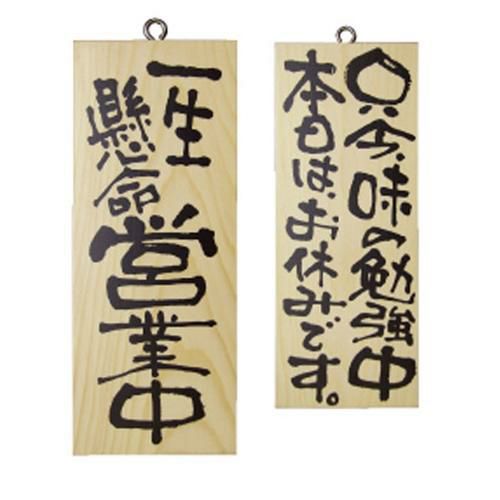 一生
懸命
営業中
只今、味の勉強中
本日は、お休みです。